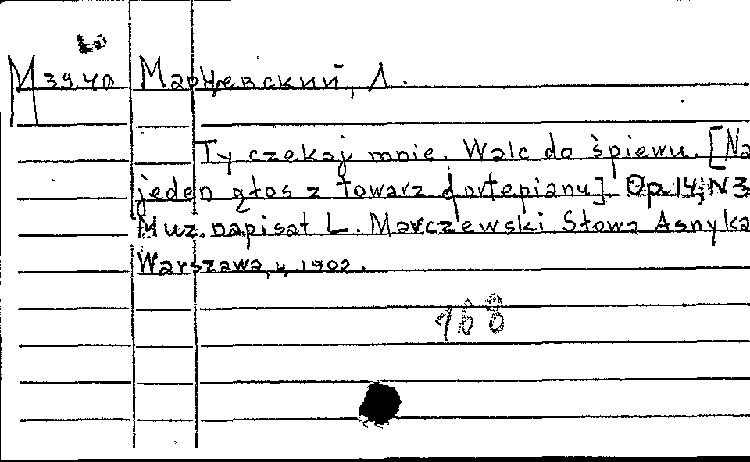 M 39.40 Марчевский, Л.
Ty czekaj mnie. Walc do śpiewu. [Na
jeden głos z towarz fortepianu] Op. 14, N 3
Muz. napisał L. Marczewski Słowa Asnyka
Warszawa, 1902.
168